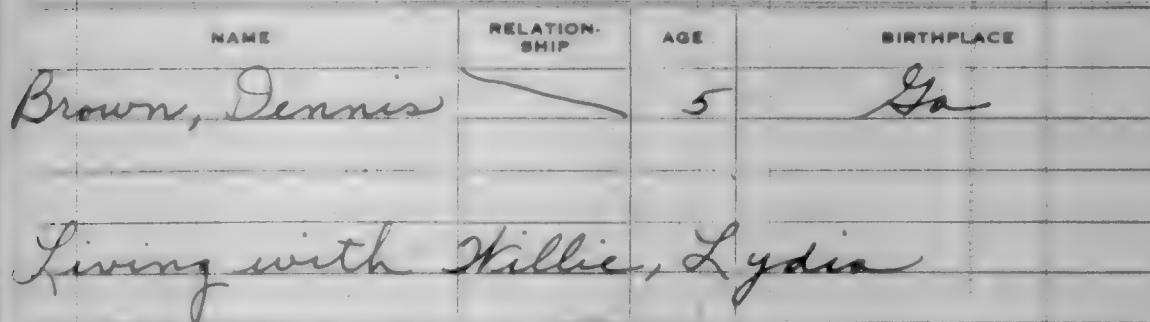 NAME RELATION-SHIP AGE BIRTHPLACE
Brown, Dennis 5 Ga
Living with Willie, Lydia